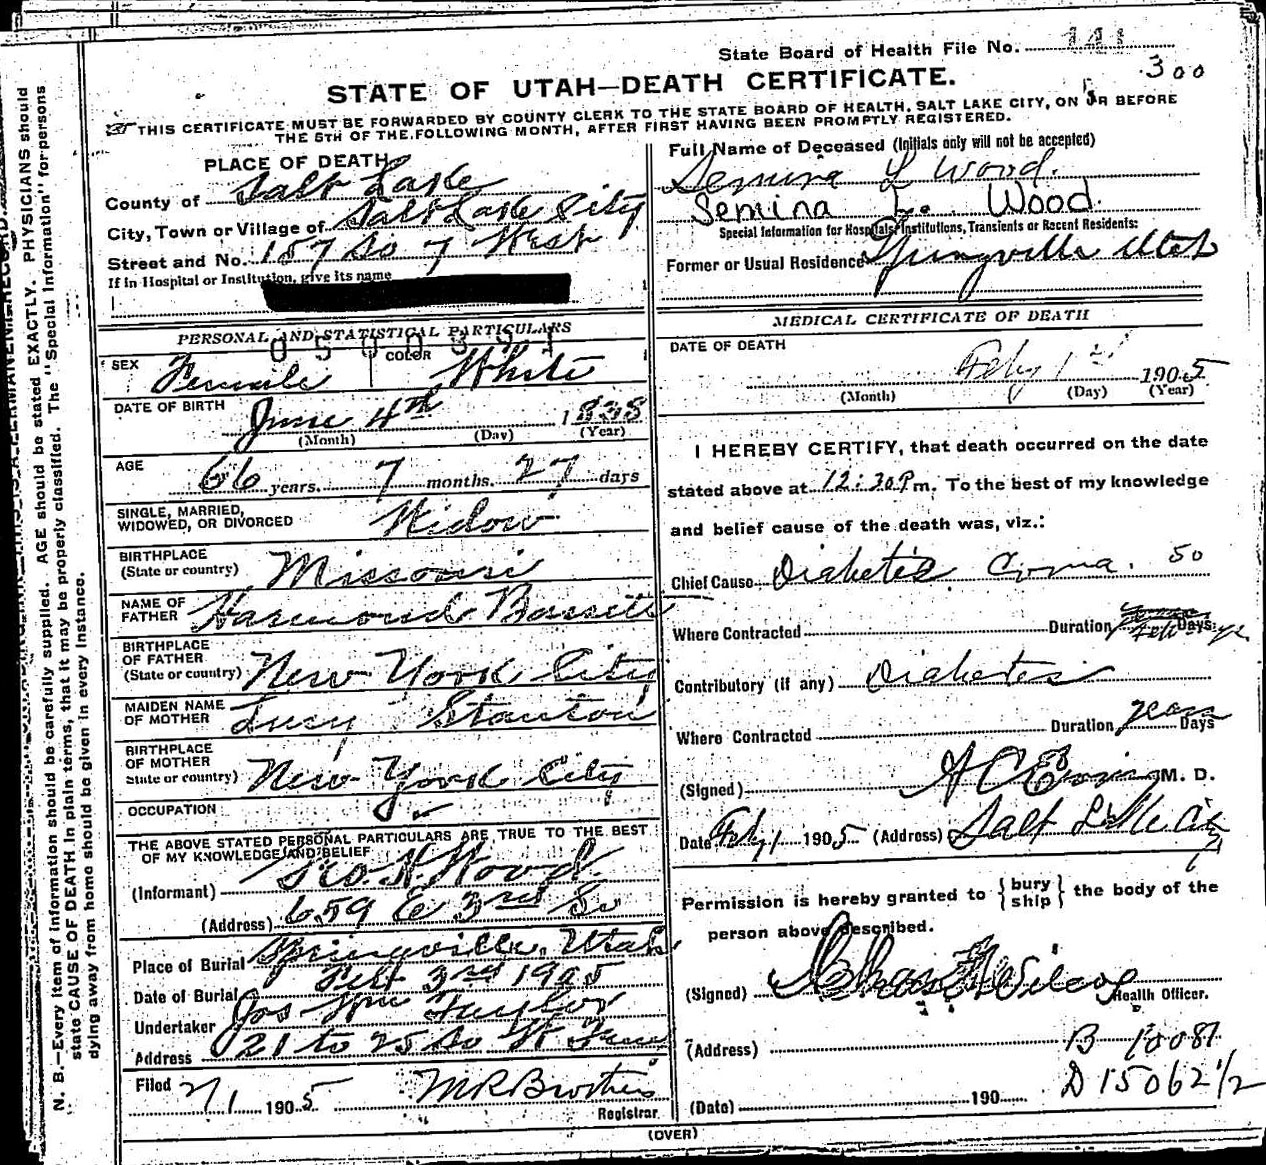 State Board of Health File No. 141
300
STATE OF UTAH—DEATH CERTIFICATE.
THIS CERTIFICATE MUST BE FORWARDED BY COUNTY CLERK TO THE STATE BOARD OF HEALTH, SALT LAKE CITY, ON OR BEFORE
THE 5TH OF THE FOLLOWING MONTH, AFTER FIRST HAVING BEEN PROMPTLY REGISTERED.
PLACE OF DEATH
County of Salt Lake
City, Town or Village of Salt Lake City
Street and No. 157 So 7 West
If in Hospital or Institution, give its name
PERSONAL AND STATISTICAL PARTICULARS
0500391
SEX Female COLOR White
DATE OF BIRTH June 4th 1838
(Month) (Day) (Year)
AGE 66 years. 7 months. 27 days
SINGLE, MARRIED,
WIDOWED, OR DIVORCED Widow
BIRTHPLACE
(State or country) Missouri
NAME OF
FATHER Harmond Bassett
BIRTHPLACE
OF FATHER
(State or country) New York City
MAIDEN NAME
OF MOTHER Lucy Stanton
BIRTHPLACE
OF MOTHER
State or country) New York City
OCCUPATION
THE ABOVE STATED PERSONAL PARTICULARS ARE TRUE TO THE BEST
OF MY KNOWLEDGE AND BELIEF
(Informant) Geo. H. Wood
(Address) 659 E 3rd So
Place of Burial Springville, Utah
Date of Burial Feb 3rd 1905
Undertaker Jos Wm Taylor
Address 21 to 25 So W Temp
Filed 2/1 1905 M R Brothers
Registrar.
Full Name of Deceased (Initials only will not be accepted)
Semina L Wood.
Semina L. Wood.
Special Information for Hospitals, Institutions, Transients or Recent Residents:
Former or Usual Residence Springville Utah
MEDICAL CERTIFICATE OF DEATH
DATE OF DEATH
Feby 1st 1905
(Month) (Day) (Year)
I HEREBY CERTIFY, that death occurred on the date
stated above at 12:30 P m. To the best of my knowledge
and belief cause of the death was, viz.:
Chief Cause Diabetic Coma. 50
Where Contracted Duration Days
Contributory (if any) Diabetes
Where Contracted Duration years Days
(Signed) M. D.
Date Feby 1 1905 (Address) Salt Lake City
Permission is hereby granted to { bury
ship } the body of the
person above described.
(Signed) Chas F Wilcox Health Officer.
(Address) B 10081
D 15062 1/2
(Date) 190
(OVER)
N. B.—Every item of information should be carefully supplied. AGE should be stated EXACTLY. PHYSICIANS should
state CAUSE OF DEATH in plain terms, that it may be properly classified. The "Special Information" for persons
dying away from home should be given in every instance.